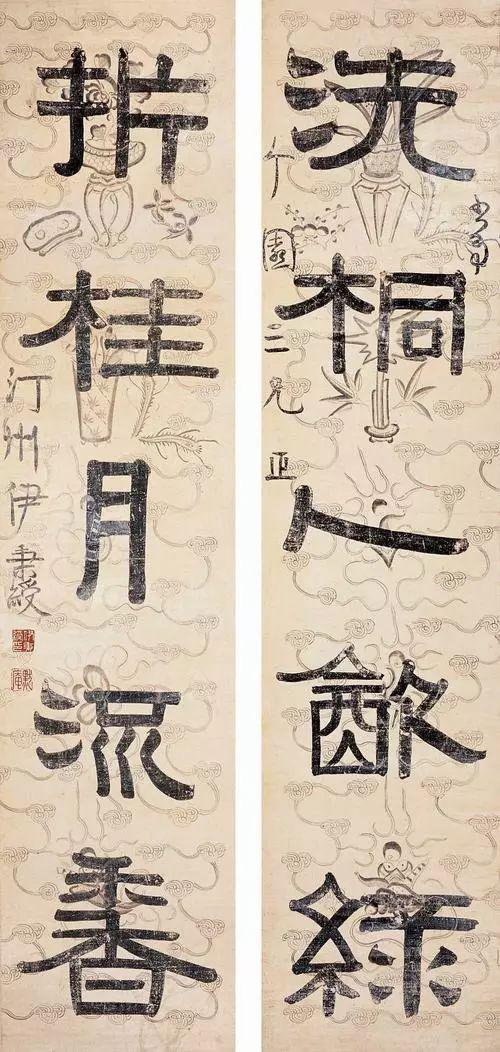 洗桐人飲綠
園三兄正
折桂月流香
汀州伊秉綬